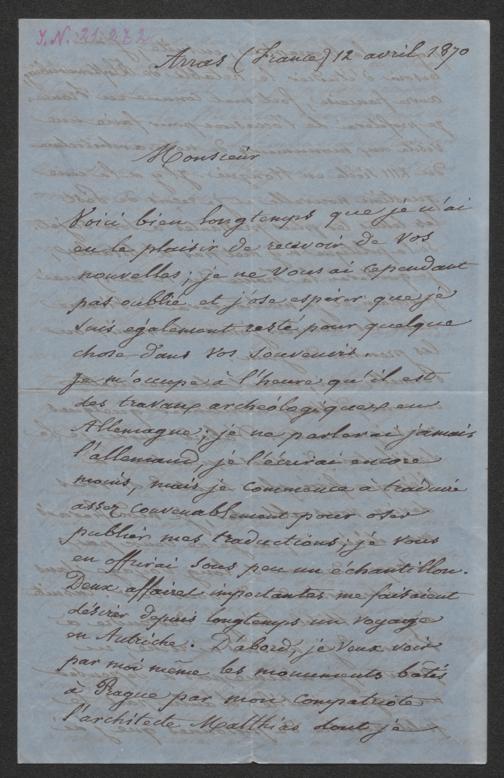 I.N. 21.272
Arras (France) 12 avril 1870
Monsieur
Voici bien longtemps que je n'ai
eu le plaisir de recevoir de vos
nouvelles; je ne vous ai cependant
pas oublié et j'ose espérer que je
suis également resté pour quelque
chose dans vos souvenirs.
Je m'occupe à l'heure qu'il est
des travaux archéologiques en
Allemagne; je ne parlerai jamais
l'allemand, je l'écrirai encore
moins, mais je commence à traduire
assez convenablement pour oser
publier mes traductions; je vous
en offrirai sous peu un échantillon.
Deux affaires importantes me faisaient
désirer depuis longtemps un voyage
en Autriche. D'abord, je veux voir
par moi même les monuments bâtis
à Prague par mon compatriote
l'architecte Matthias dont je